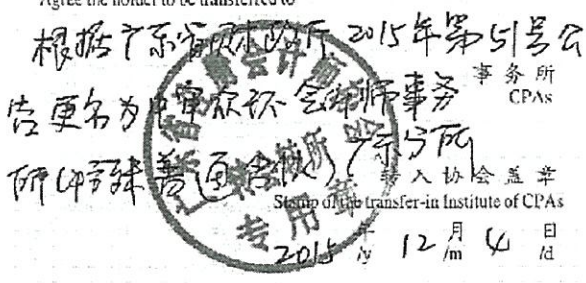 Agree the holder to be transferred to
根据广东省财政厅2015年第51号公
事务所
CPAs
告更名为中审众环会计师事务
所(特殊普通合伙)广东分所
转入协会盖章
Stamp of the transfer-in Institute of CPAs
2015年/y 12月/m 4日/d
专用章